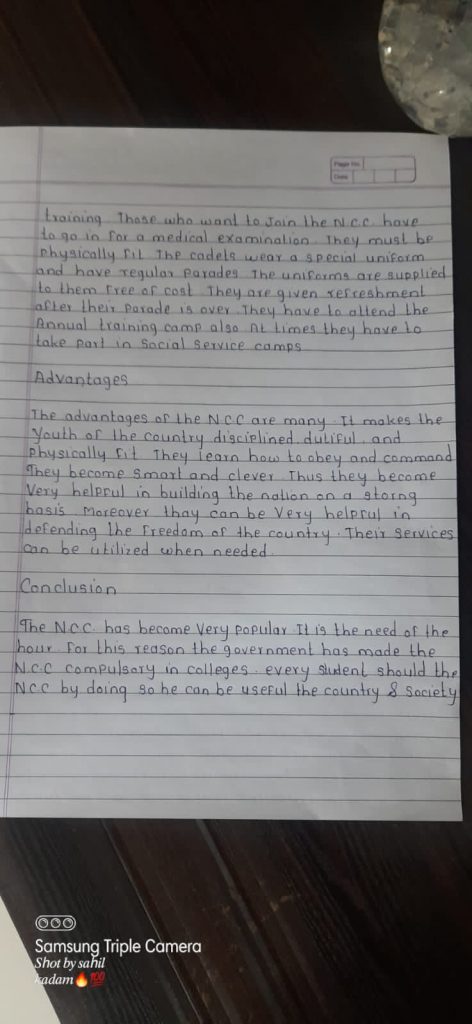 Page No.
Date
training. Those who want to Join the N.C.C. have
to go in for a medical examination. They must be
physically fit. The cadets wear a special uniform
and have regular parades. The uniforms are supplied
to them free of cost. They are given refreshment
after their parade is over. They have to attend the
Annual training camp also. At times they have to
take part in Social Service camps.
Advantages
The advantages of the NCC are many. It makes the
Youth of the country disciplined, dutiful, and
physically fit. They learn how to obey and command
They become Smart and clever. Thus they become
Very helpful in building the nation on a storng
basis. Moreover thay can be Very helpful in
defending the Freedom of the country. Their Services
can be utilized when needed.
Conclusion
The N.C.C. has become Very popular. It is the need of the
hour. For this reason the government has made the
N.C.C compulsory in colleges. every student should the
NCC by doing so he can be useful the country & Society
Samsung Triple Camera
Shot by sahil
kadam🔥💯